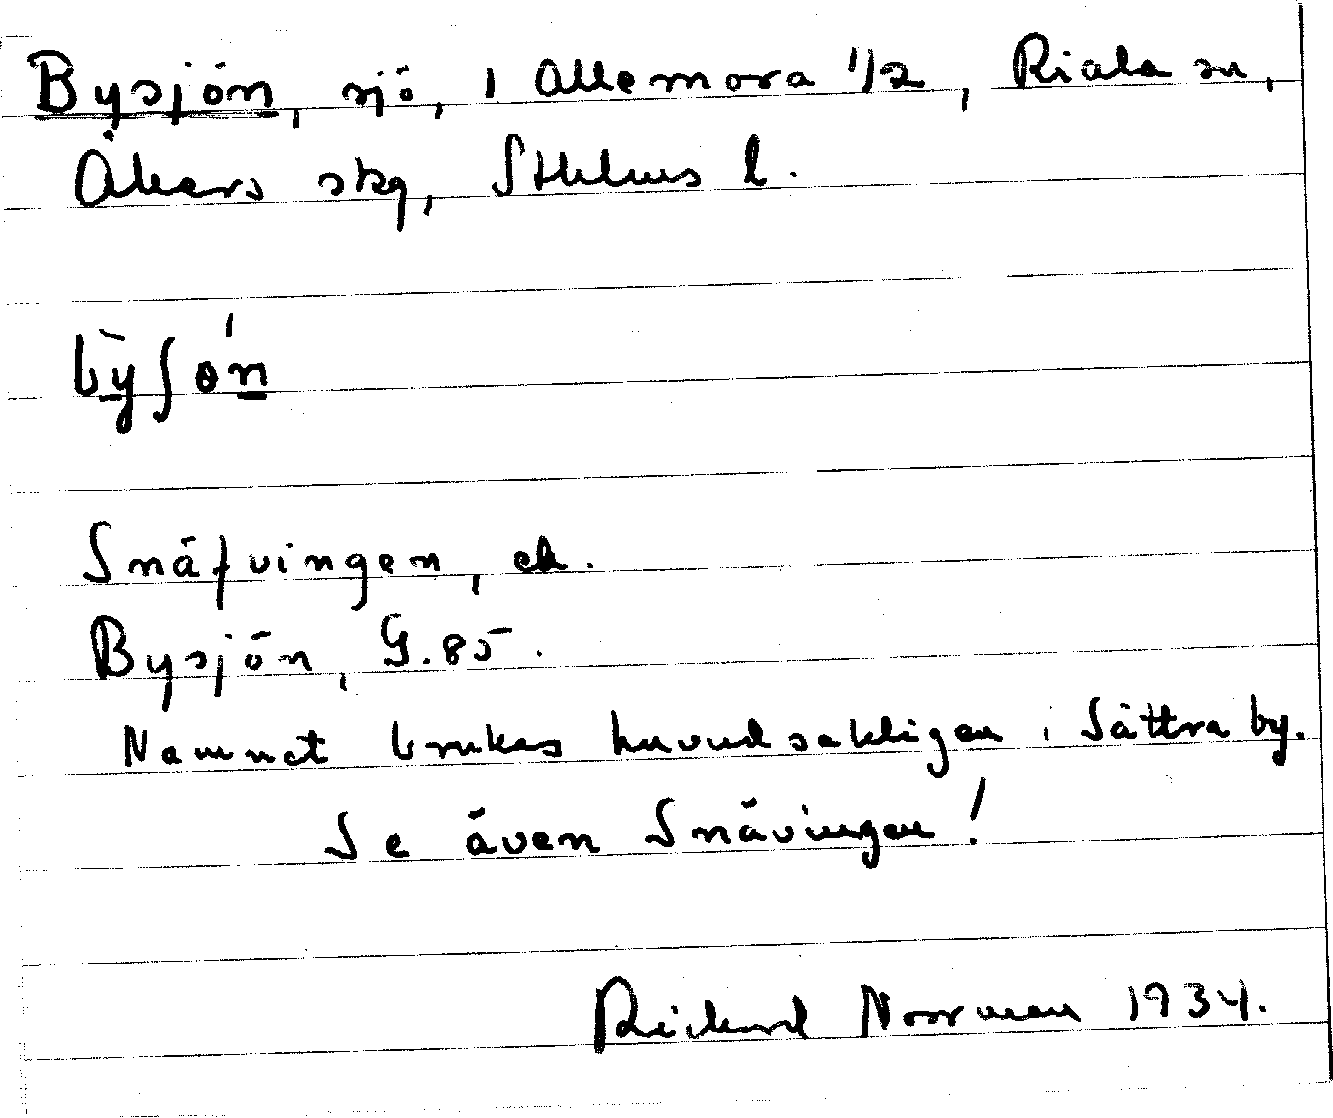 Bysjön, sjö, i Allemora 1/2, Riala sn,
Åkers skg, Sthlms l.
bỳʃөń
Snäfvingen, ek.
Bysjön, G.85.
Namnet brukas huvudsakligen i Sättra by.
Se även Snävingen!
Rickard Noorman 1934.